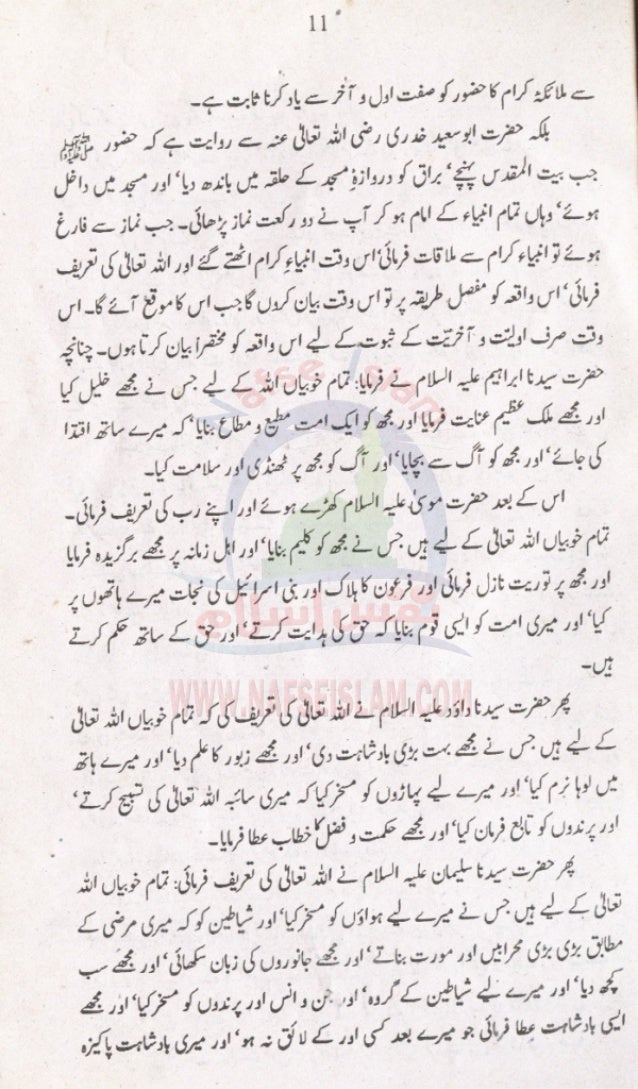 11
سے ملائکۂ کرام کا حضور کو صفت اول و آخر سے یاد کرنا ثابت ہے۔
بلکہ حضرت ابوسعید خدری رضی اللہ تعالیٰ عنہ سے روایت ہے کہ حضور ﷺ
جب بیت المقدس پہنچے‘ براق کو دروازۂ مسجد کے حلقہ میں باندھ دیا‘ اور مسجد میں داخل
ہوئے‘ وہاں تمام انبیاء کے امام ہو کر آپ نے دو رکعت نماز پڑھائی۔ جب نماز سے فارغ
ہوئے تو انبیاء کرام سے ملاقات فرمائی‘ اس وقت انبیاءِ کرام اٹھتے گئے اور اللہ تعالیٰ کی تعریف
فرمائی‘ اس واقعہ کو مفصل طریقہ پر تو اس وقت بیان کروں گا جب اس کا موقع آئے گا۔ اس
وقت صرف اولیّت و آخریّت کے ثبوت کے لیے اس واقعہ کو مختصراً بیان کرتا ہوں۔ چنانچہ
حضرت سیدنا ابراہیم علیہ السلام نے فرمایا: تمام خوبیاں اللہ کے لیے جس نے مجھے خلیل کیا
اور مجھے ملک عظیم عنایت فرمایا اور مجھ کو ایک امت مطیع و مطاع بنایا‘ کہ میرے ساتھ اقتدا
کی جائے‘ اور مجھ کو آگ سے بچایا‘ اور آگ کو مجھ پر ٹھنڈی اور سلامت کیا۔
اس کے بعد حضرت موسیٰ علیہ السلام کھڑے ہوئے اور اپنے رب کی تعریف فرمائی۔
تمام خوبیاں اللہ تعالیٰ کے لیے ہیں جس نے مجھ کو کلیم بنایا‘ اور اہل زمانہ پر مجھے برگزیدہ فرمایا
اور مجھ پر توریت نازل فرمائی اور فرعون کا ہلاک اور بنی اسرائیل کی نجات میرے ہاتھوں پر
کیا‘ اور میری امت کو ایسی قوم بنایا کہ حق کی ہدایت کرتے‘ اور حق کے ساتھ حکم کرتے
ہیں۔
پھر حضرت سیدنا داؤد علیہ السلام نے اللہ تعالیٰ کی تعریف کی کہ تمام خوبیاں اللہ تعالیٰ
کے لیے ہیں جس نے مجھے بہت بڑی بادشاہت دی‘ اور مجھے زبور کا علم دیا‘ اور میرے ہاتھ
میں لوہا نرم کیا‘ اور میرے لیے پہاڑوں کو مسخر کیا کہ میری ساتھ اللہ تعالیٰ کی تسبیح کرتے‘
اور پرندوں کو تابع فرمان کیا‘ اور مجھے حکمت و فضل کا خطاب عطا فرمایا۔
پھر حضرت سیدنا سلیمان علیہ السلام نے اللہ تعالیٰ کی تعریف فرمائی: تمام خوبیاں اللہ
تعالیٰ کے لیے ہیں جس نے میرے لیے ہواؤں کو مسخر کیا‘ اور شیاطین کو کہ میری مرضی کے
مطابق بڑی بڑی محرابیں اور مورت بناتے‘ اور مجھے جانوروں کی زبان سکھائی‘ اور مجھے سب
کچھ دیا‘ اور میرے لیے شیاطین کے گروہ‘ اور جن و انس اور پرندوں کو مسخر کیا‘ اور مجھے
ایسی بادشاہت عطا فرمائی جو میرے بعد کسی اور کے لائق نہ ہو‘ اور میری بادشاہت پاکیزہ
Nafse Islam
نفس اسلام
WWW.NAFSEISLAM.COM